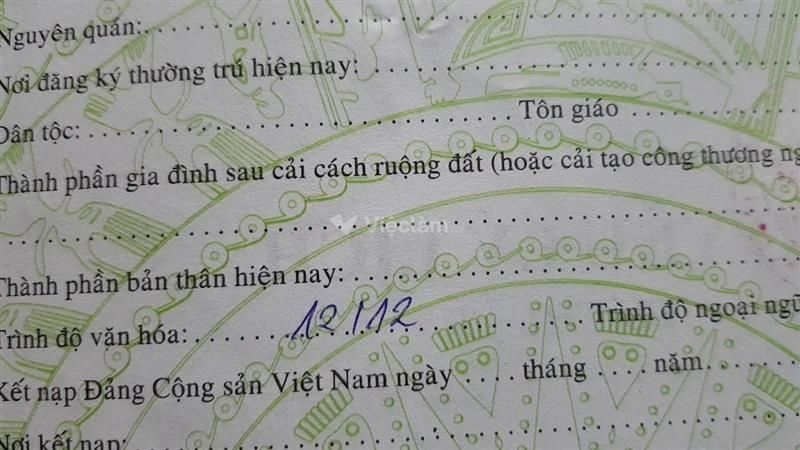 Nguyên quán:
Nơi đăng ký thường trú hiện nay:
Dân tộc: Tôn giáo
Thành phần gia đình sau cải cách ruộng đất (hoặc cải tạo công thương ng
Việclàm
Thành phần bản thân hiện nay:
Trình độ văn hóa: 12/12 Trình độ ngoại ngữ
Kết nạp Đảng Cộng sản Việt Nam ngày .... tháng .... năm
Nơi kết nạp: